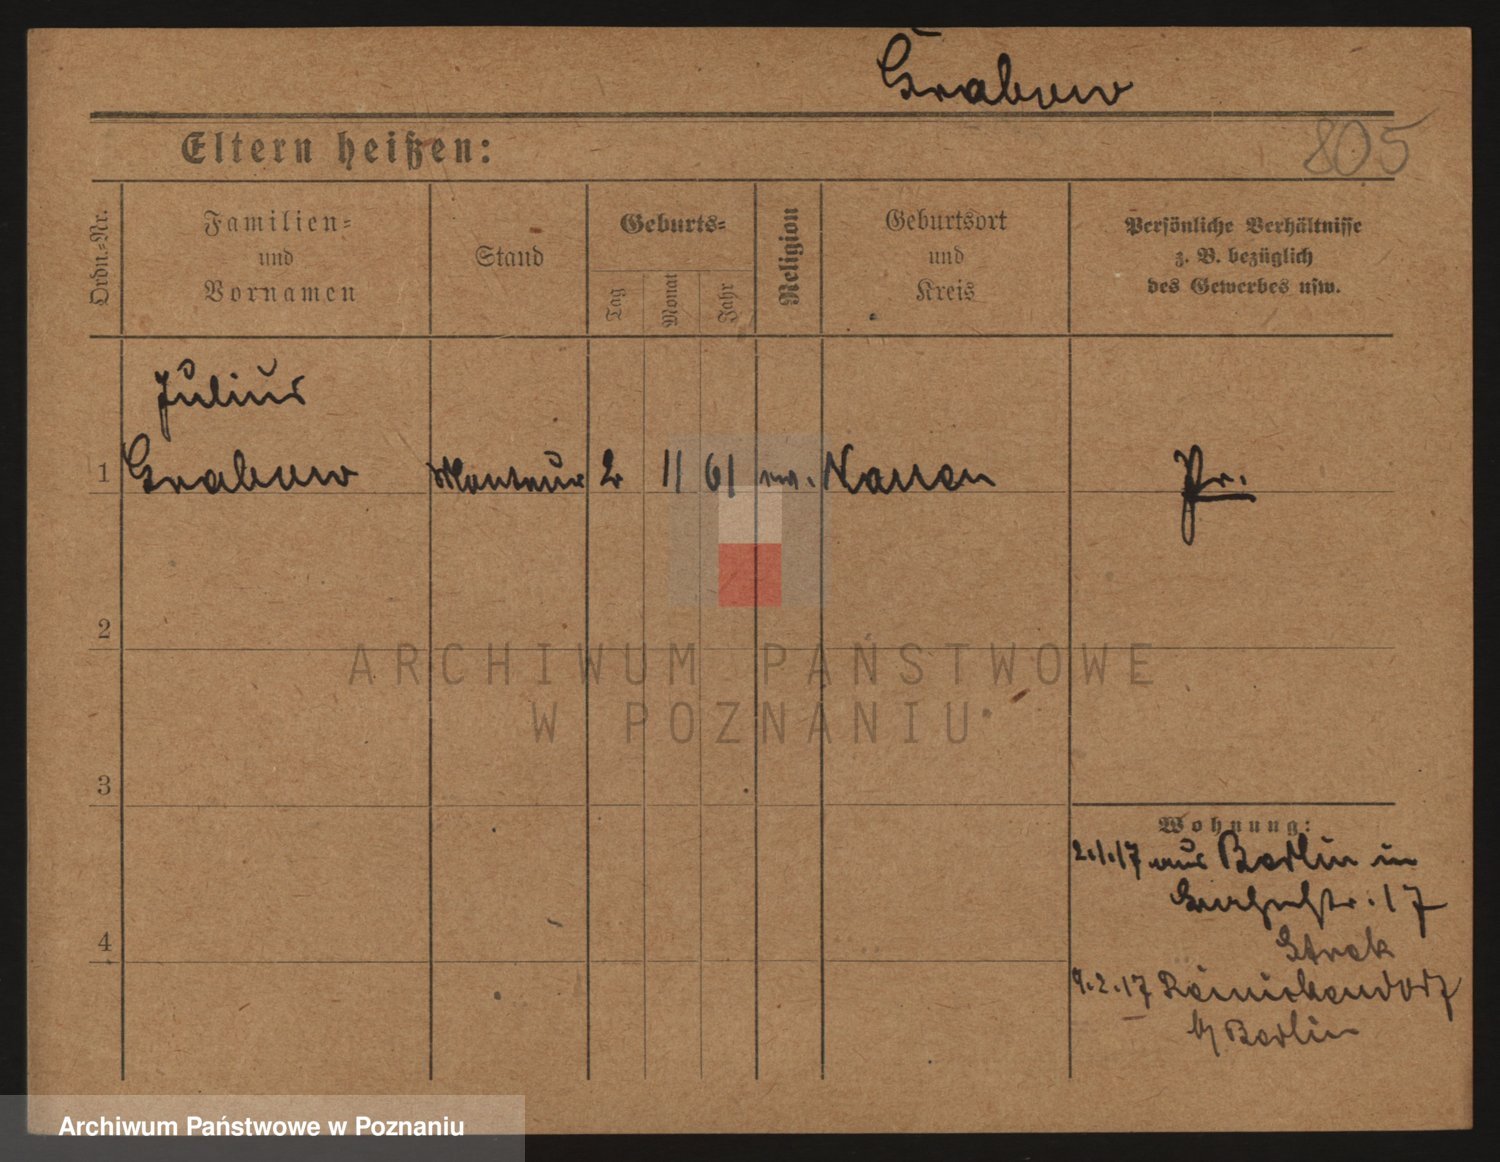 Grabow
805
Eltern heißen:
Ordn.-Nr.
Familien-
und
Vornamen
Stand
Geburts-
Tag
Monat
Jahr
Religion
Geburtsort
und
Kreis
Persönliche Verhältnisse
z. B. bezüglich
des Gewerbes usw.
Julius
1 Grabow Monteur 2 11 61 Nauen Pr.
2
ARCHIWUM PAŃSTWOWE
W POZNANIU
3
Wohnung:
2.1.17 aus Berlin in
17
4
9.2.17 Reinickendorf
b/ Berlin
Archiwum Państwowe w Poznaniu